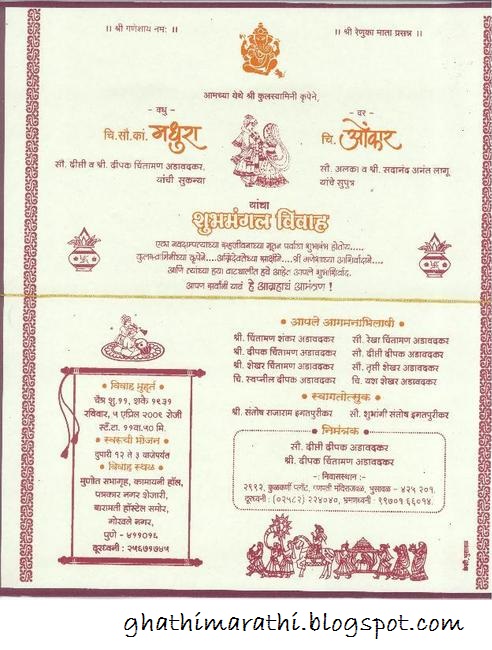 ।। श्री गणेशाय नमः ।।
।। श्री रेणुका माता प्रसन्न ।।
आमच्या येथे श्री कुलस्वामिनी कृपेने,
- वधु -
चि.सौ.कां. मधुरा
सौ. दीप्ती व श्री. दीपक चिंतामण अडावदकर,
यांची सुकन्या
- वर -
चि. ओंकार
सौ. अलका व श्री. सदानंद अनंत लागू
यांचे सुपुत्र
यांचा
शुभमंगल विवाह
एका नवदाम्पत्याच्या सहजीवनाच्या नूतन पर्वाचा शुभारंभ होतोय.....
कुलस्वामिनीच्या कृपेने....अग्निदेवतेच्या साक्षीने....श्री गणेशाच्या आशिर्वादाने....
आणि त्यांच्या ह्या वाटचालीत हवे आहेत आपले शुभाशिर्वाद.
आपण सर्वांनी यावं हे आग्रहाचं आमंत्रण !
• विवाह मुहूर्त •
चैत्र शु.११, शके १९३१
रविवार, ५ एप्रिल २००९ रोजी
स्टँ.टा. ११वा.५० मि.
• स्वरुची भोजन •
दुपारी १२ ते ३ वाजेपर्यंत
• विवाह स्थळ •
मुणोत सभागृह, कामायनी हॉल,
पात्रकार नगर शेजारी,
बारामती हॉस्टेल समोर,
गोखले नगर,
पुणे - ४११०१६
दूरध्वनी : २५६७१७४५
• आपले आगमनाभिलाषी •
श्री. चिंतामण शंकर अडावदकर सौ. रेखा चिंतामण अडावदकर
श्री. दीपक चिंतामण अडावदकर सौ. दीप्ती दीपक अडावदकर
श्री. शेखर चिंतामण अडावदकर सौ. तृप्ती शेखर अडावदकर
चि. स्वप्नील दीपक अडावदकर चि. यश शेखर अडावदकर
• स्वागतोत्सुक •
श्री. संतोष राजाराम इगतपुरीकर सौ. शुभांगी संतोष इगतपुरीकर
• निमंत्रक •
सौ. दीप्ती दीपक अडावदकर
श्री. दीपक चिंतामण अडावदकर
-: निवासस्थान :-
२९९२, कुळकर्णी प्लॉट, गणपती मंदिराजवळ, भुसावळ - ४२५ २०१.
दूरध्वनी : (०२५८२) २२४०४०, भ्रमणध्वनी : ९९७०१ ६६०१४.
ghathimarathi.blogspot.com